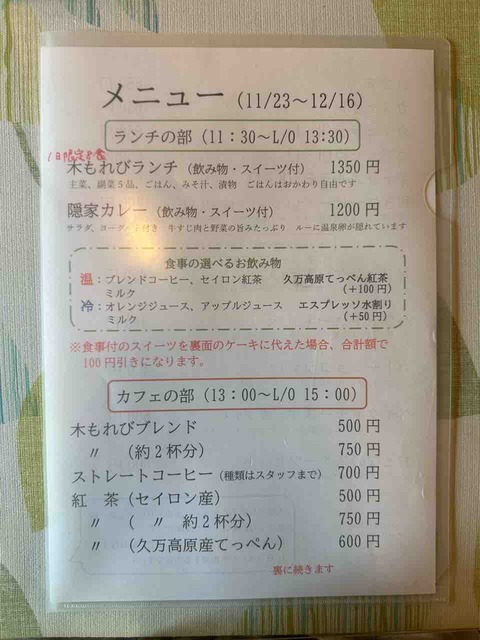 メニュー (11/23～12/16)
ランチの部 (11：30～L/O 13:30)
1日限定8食
木もれびランチ (飲み物・スイーツ付) 1350 円
主菜、副菜５品、ごはん、みそ汁、漬物 ごはんはおかわり自由です
隠家カレー (飲み物・スイーツ付) 1200 円
サラダ、ヨーグルト付き 牛すじ肉と野菜の旨みたっぷり ルーに温泉卵が隠れています
食事の選べるお飲み物
温：ブレンドコーヒー、セイロン紅茶 久万高原てっぺん紅茶
ミルク (＋100 円)
冷：オレンジジュース、アップルジュース エスプレッソ水割り
ミルク (＋50 円)
※食事付のスイーツを裏面のケーキに代えた場合、合計額で
100 円引きになります。
カフェの部 (13：00～L/O 15：00)
木もれびブレンド 500 円
〃 (約２杯分) 750 円
ストレートコーヒー (種類はスタッフまで) 700 円
紅 茶 (セイロン産) 500 円
〃 ( 〃 約２杯分) 750 円
〃 (久万高原産てっぺん) 600 円
裏に続きます